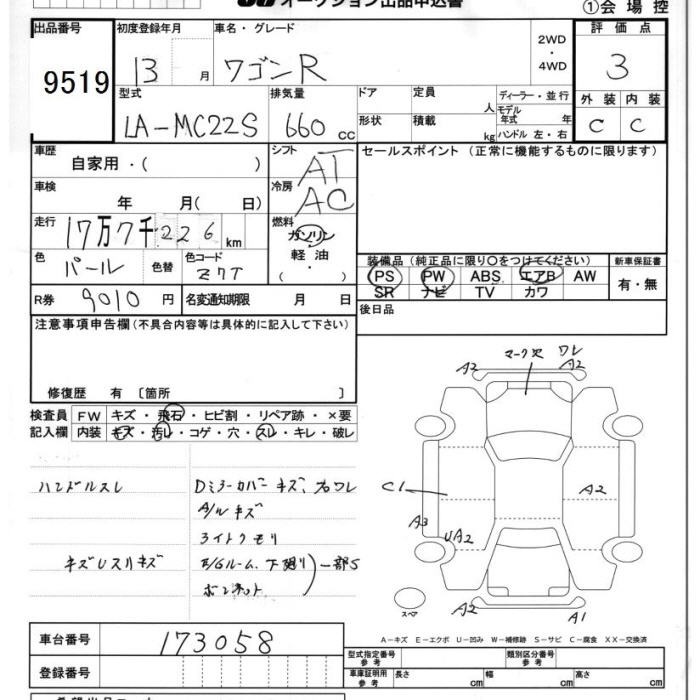 オークション出品申込書
①会場控
出品番号 初度登録年月 車名・グレード 評価点
9519 13 年 月 ワゴンR 2WD・4WD 3
型式 排気量 ドア 定員 人 ディーラー・並行 外装 内装
LA-MC22S 660cc 形状 積載 kg モデル年式 年 ハンドル 左・右 C C
車歴 自家用・( ) シフト AT セールスポイント (正常に機能するものに限ります)
車検 年 月( 日) 冷房 AC
走行 17万7千226km 燃料 ガソリン・軽油・( )
色 パール 色替 色コード Z7T 装備品(純正品に限り○をつけてください) 新車保証書
PS PW ABS エアB AW 有・無
SR ナビ TV カワ
R券 9010円 名変通知期限 月 日 後日品
注意事項申告欄(不具合内容等は具体的に記入して下さい)
修復歴 有 〔箇所 〕
検査員記入欄 FW キズ・飛石・ヒビ割・リペア跡・×要
内装 キズ・汚レ・コゲ・穴・スレ・キレ・破レ
ハンドルスレ Dミラーカバーキズ、
A/Wキズ
ライトクモリ
キズUスリキズ E/Gルーム、下廻り 一部S
ボンネット
A2 マーク穴 ワレ A2 A2
C1 A2
A3 UA2
スペア A2 A1
A-キズ E-エクボ U-凹み W-補修跡 S-サビ C-腐食 XX-交換済
車台番号 173058 型式指定番号 参考 類別区分番号 参考
登録番号 車庫証明用 参考 長さ cm 幅 cm 高さ cm